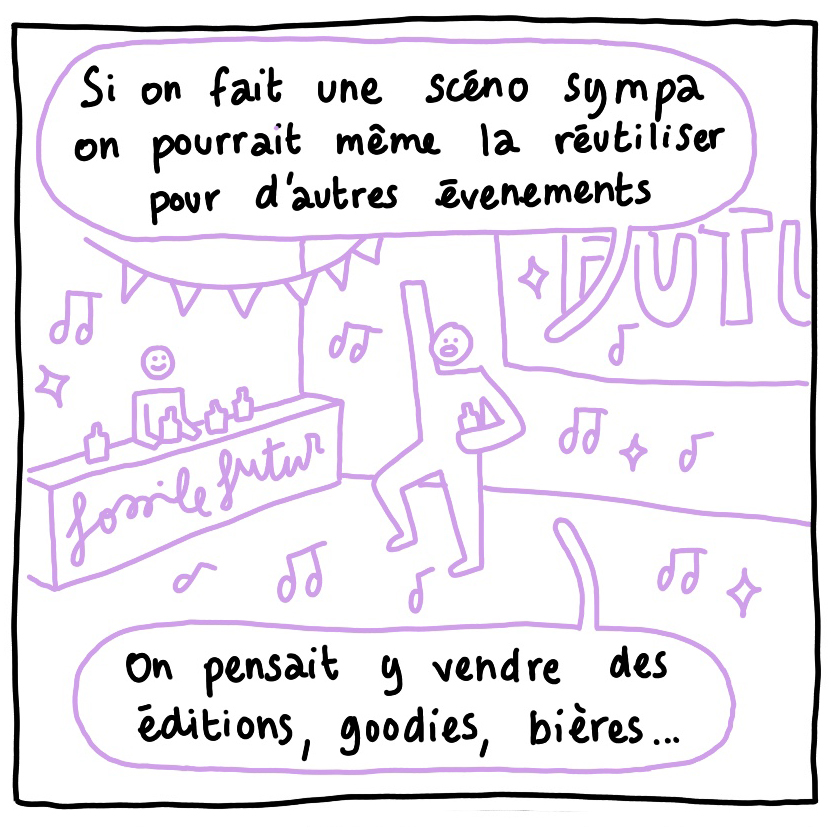 Si on fait une scéno sympa
on pourrait même la réutiliser
pour d'autres évenements
FUTU
fossile futur
On pensait y vendre des
éditions, goodies, bières...